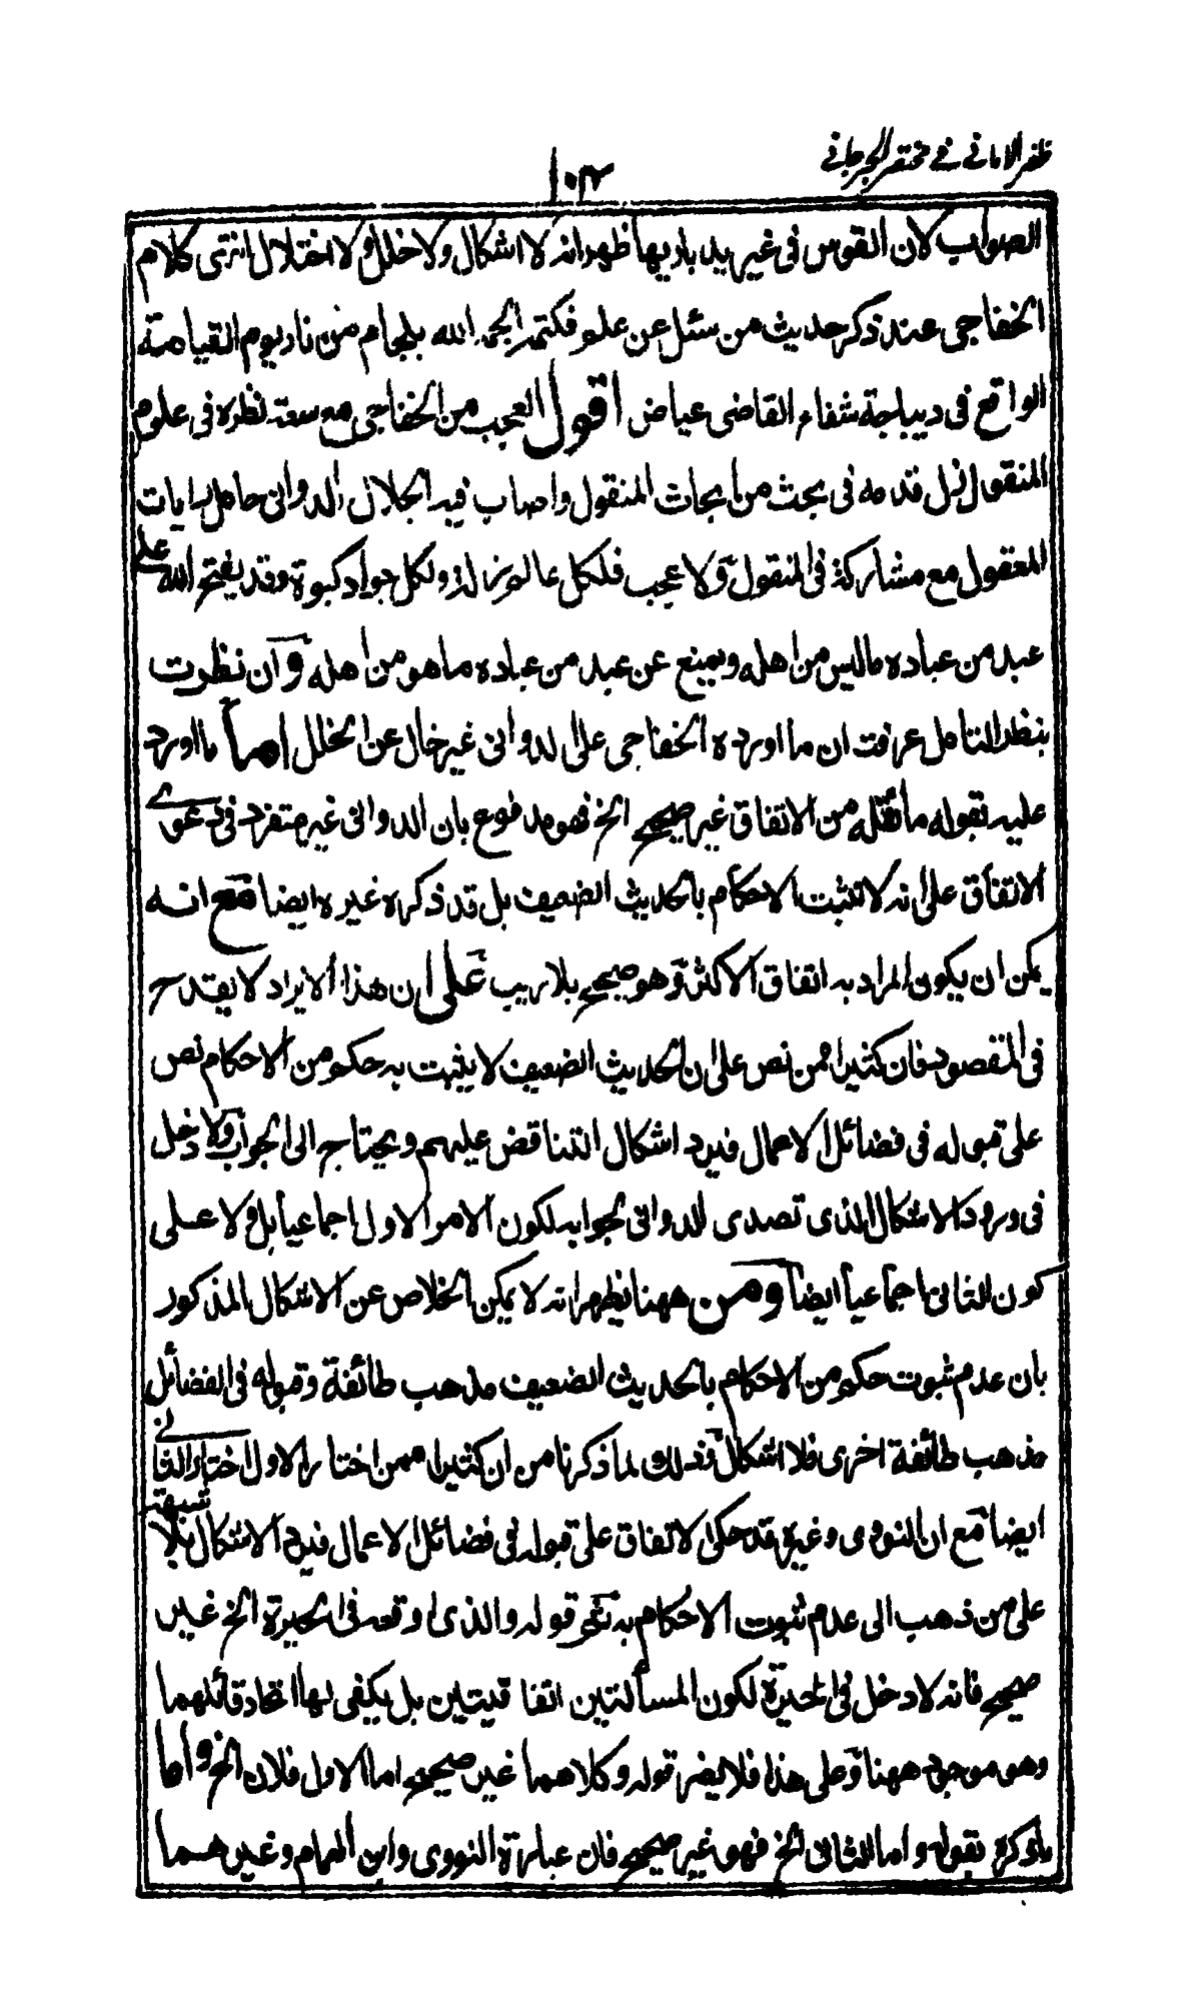 ظفر الاماني في مختصر الجرجاني
الصواب لان القوس فى غير يد باريها ظهر انه لا اشكال ولا خلل ولا اختلال انتهى كلام
الخفاجى عند ذكر حديث من سئل عن علم فكتمه الجمه الله بلجام من نار يوم القيامة
الواقع فى ديباجة شفاء القاضى عياض اقول العجب من الخفاجى مع سعة نظره فى علوم
المنقول نزل قدمه فى بحث من ابحاث المنقول واصاب فيه الجلال الدوانى حامل رايات
المعقول مع مشاركة فى المنقول ولا عجب فلكل عالم زلة ولكل جواد كبوة وقد يفتح الله على
عبد من عباده ما ليس من اهله ويمنع عن عبد من عباده ما هو من اهله وان نظرت
بنظر التامل عرفت ان ما اورده الخفاجى على الدوانى غير خال عن الخلل اما ما اورد
عليه بقوله ما نقله من الاتفاق غير صحيح الخ فهو مدفوع بان الدوانى غير متفرد فى دعوے
الاتفاق على انه لا تثبت الاحكام بالحديث الضعيف بل قد ذكره غيره ايضا مع انه
يمكن ان يكون المراد به اتفاق الاكثر وهو صحيح بلا ريب على ان هذا الايراد لا يقدح
فى المقصود فان كثيرا ممن نص على ان الحديث الضعيف لا يثبت به حكم من الاحكام نص
على قبوله فى فضائل الاعمال فيرد اشكال التناقض عليهم ويحتاج الى الجواب ولا دخل
فى ورود الاشكال الذى تصدى الدوانى لجوابه لكون الامر الاول اجماعيا بل ولا على
كون الثانى اجماعيا ايضا ومن ههنا يظهر انه لا يمكن الخلاص عن الاشكال المذكور
بان عدم ثبوت حكم من الاحكام بالحديث الضعيف مذهب طائفة وقبوله فى الفضائل
مذهب طائفة اخرى فلا اشكال وذلك لما ذكرنا من ان كثيرا ممن اختار الاول اختار الثانے
ايضا مع ان النووى وغيره قد حكى الاتفاق على قبوله فى فضائل الاعمال فيرد الاشكال بلا شبهة
على من ذهب الى عدم ثبوت الاحكام به نعم قوله والذى اوقعه فى الحيرة الخ غير
صحيح فانه لا دخل فى الحيرة لكون المسألتين اتفاقيتين بل يكفى لها اتحاد قائلهما
وهو موجود ههنا وعلى هذا فلا يضر قوله وكلاهما غير صحيح اما الاول فلان الخ واما
ما ذكره بقوله واما الثانى الخ فهو غير صحيح فان عبارة النووى وابن الهمام وغيرهما